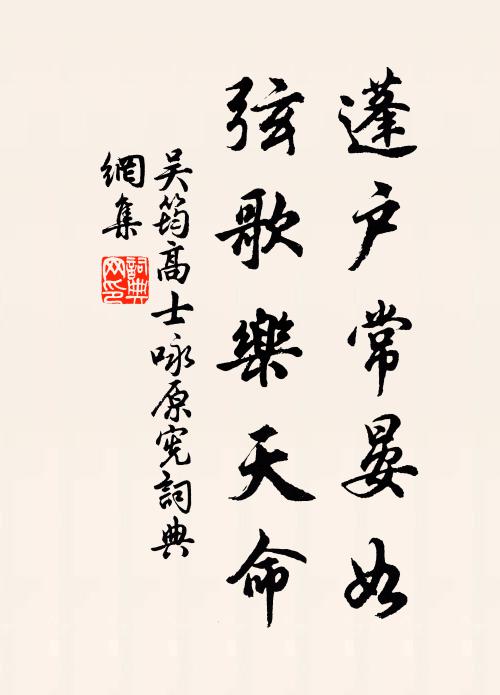 蓬户常晏如
弦歌樂天命
吴筠高士咏原宪詞典
網集
詞典
网印